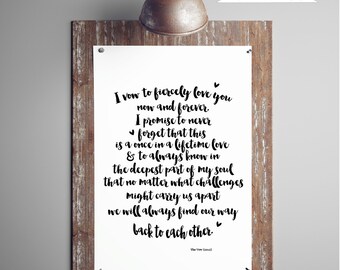 I vow to fiercely love you
now and forever.
I promise to never
forget that this
is a once in a lifetime love
& to always know in
the deepest part of my soul
that no matter what challenges
might carry us apart
we will always find our way
back to each other.